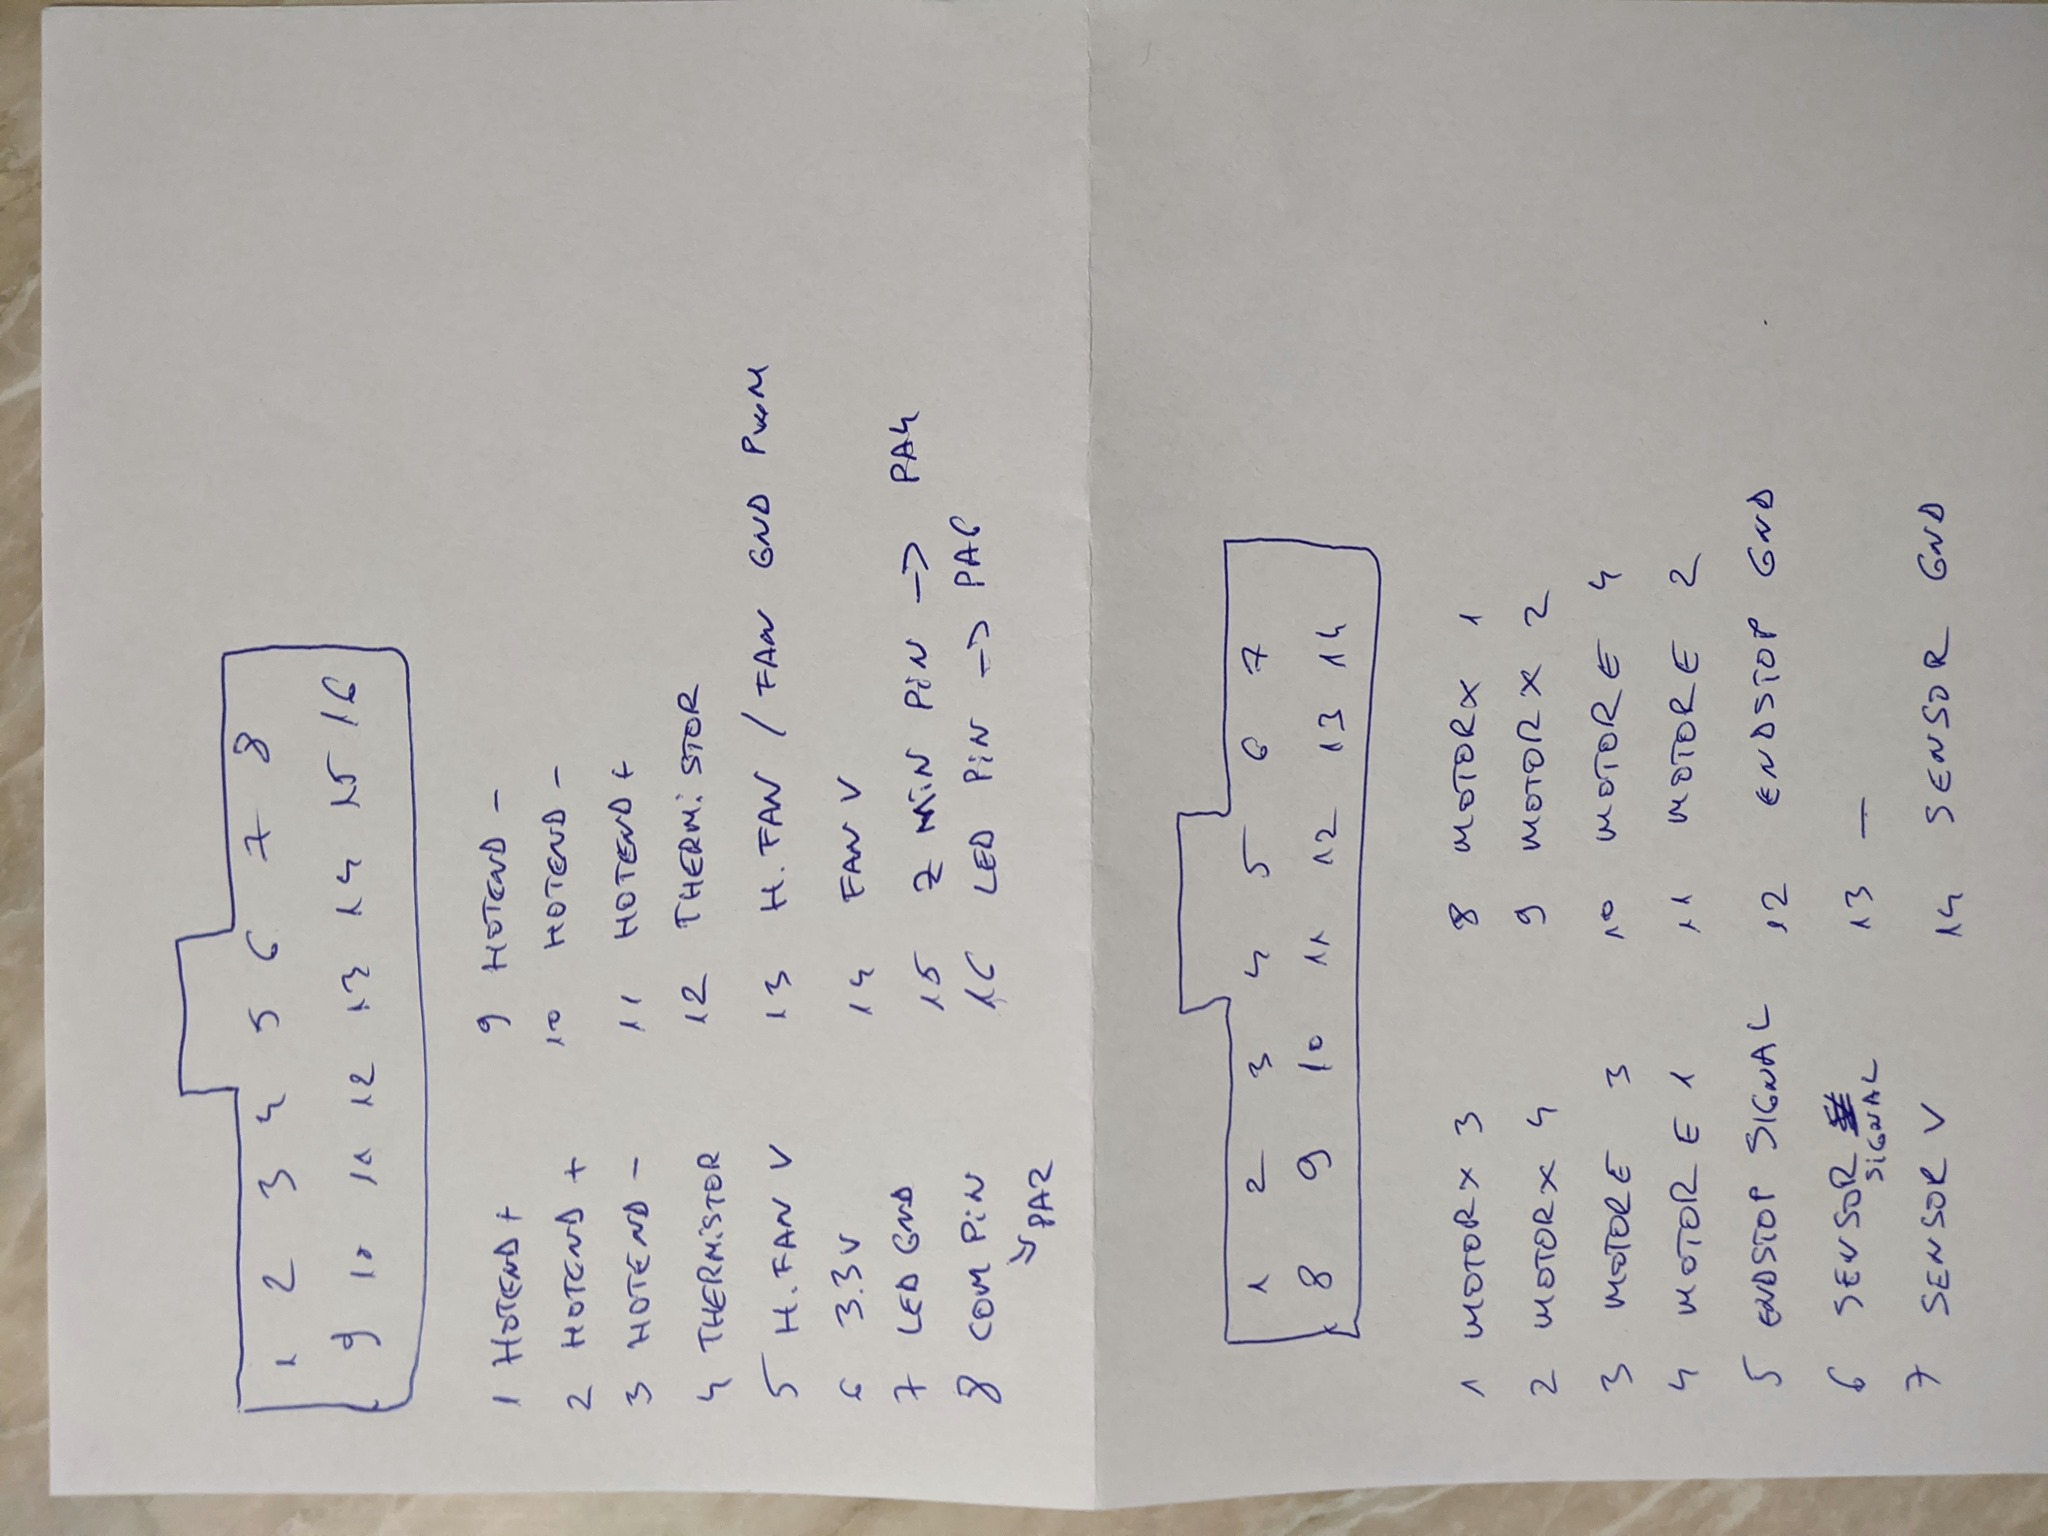 1 2 3 4 5 6 7 8
9 10 11 12 13 14 15 16
1 HOTEND +
2 HOTEND +
3 HOTEND -
4 THERMiSTOR
5 H. FAN V
6 3.3V
7 LED GND
8 COM PiN
↘ PA2
9 HOTEND -
10 HOTEND -
11 HOTEND +
12 THERMiSTOR
13 H. FAN / FAN GND PWM
14 FAN V
15 Z MiN PiN -> PA4
16 LED PiN -> PA6
1 2 3 4 5 6 7
8 9 10 11 12 13 14
1 MOTOR X 3
2 MOTOR X 4
3 MOTOR E 3
4 MOTOR E 1
5 ENDSTOP SIGNAL
6 SENSOR
SiGNAL
7 SENSOR V
8 MOTOR X 1
9 MOTOR X 2
10 MOTOR E 4
11 MOTOR E 2
12 ENDSTOP GND
13 —
14 SENSOR GND